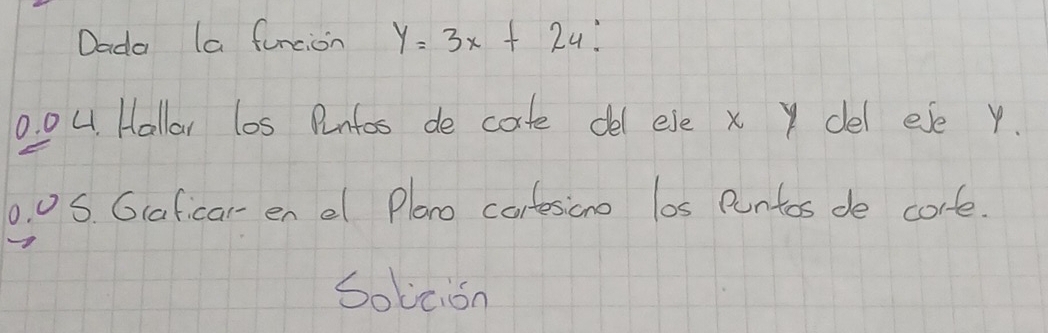 Dada la función Y = 3x + 24:
0.0 4. Hallar los Puntos de corte del eje x y del eje y.
0.0 5. Graficar en el Plano cartesiano los Puntos de corte.
Solución